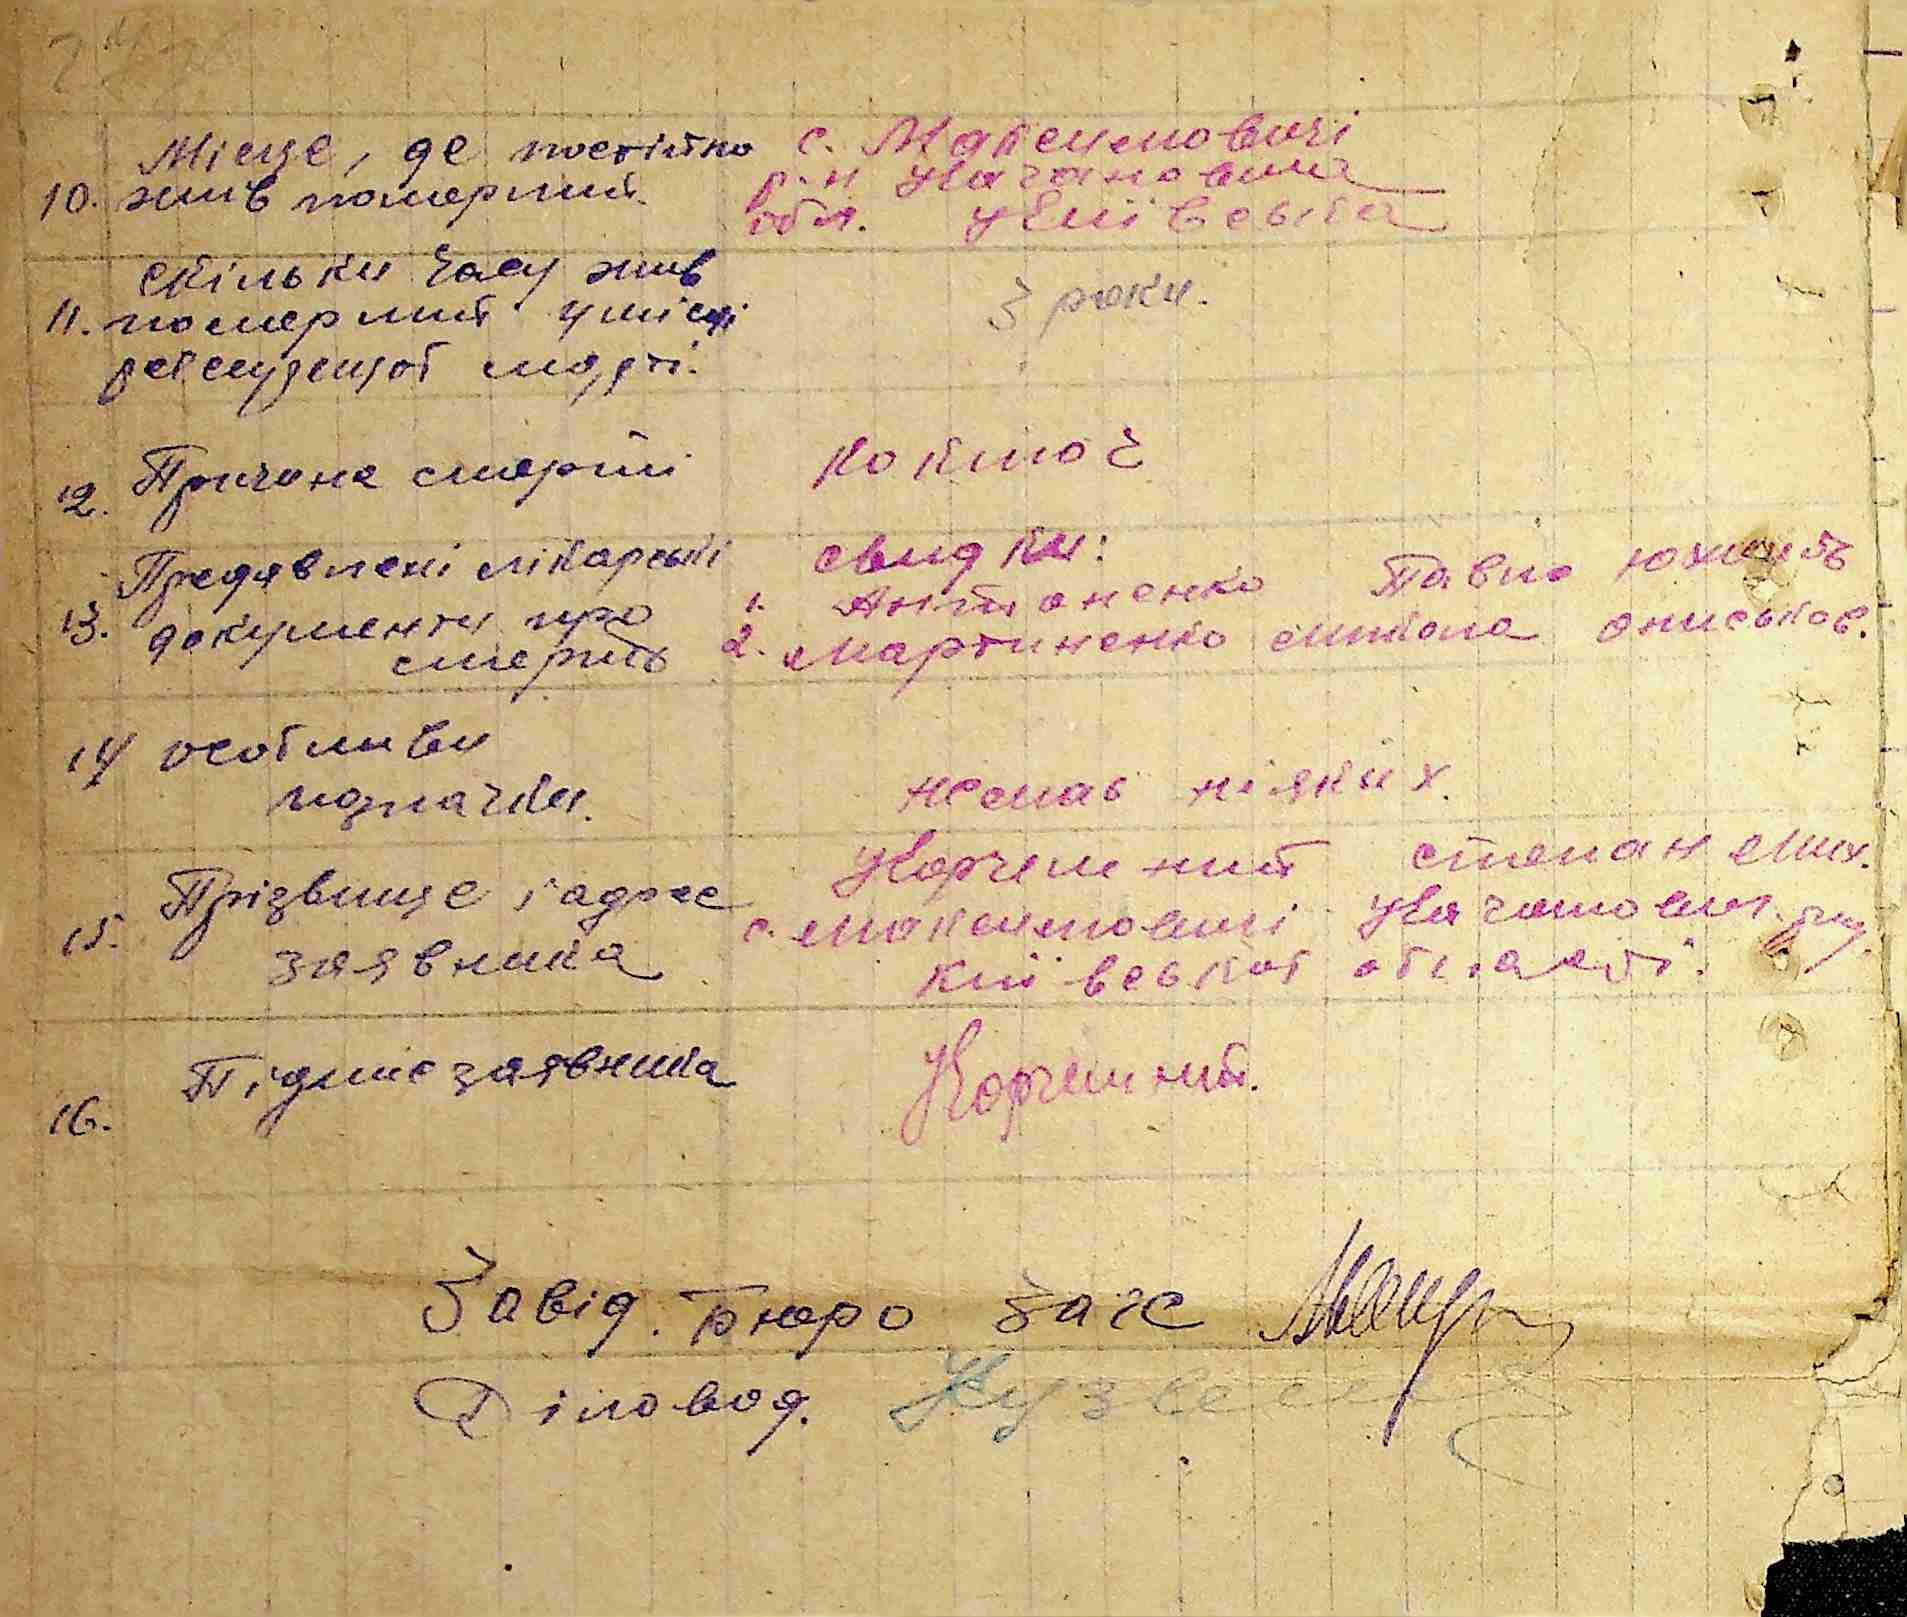 Місце, де постійно
10. жив померший.
с. Максимовичі
р-н Кагановича
обл. Київська
скільки часу жив
11. померший у місці
останньої смерті.
3 роки.
12. Причина смерті
Коключ
Предявлені лікарські
13. документи про
смерть
свидки:
1. Антоненко Павло Юхимів
2. Мартиненко Микола Ониськов.
14 особливи
позначки.
немає ніяких.
Прізвище і адрес
15. заявника
Корчемний Степан Мих.
с. Максимовичі Кагановичі р-ну.
Київської області.
16. Підпис заявника
Корчемний.
Завід. Бюро Загс
Діловод.